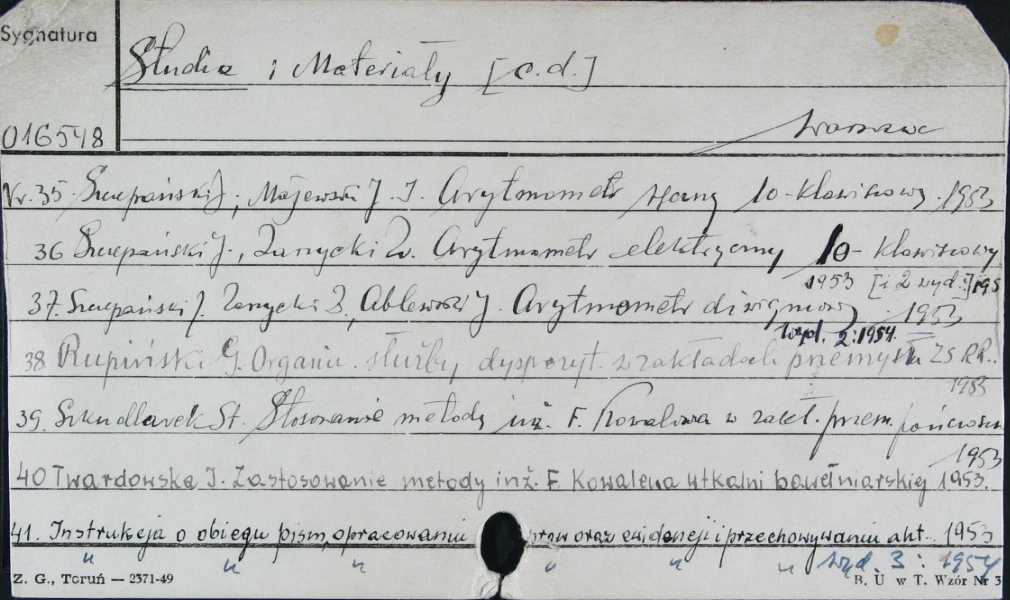 Sygnatura
Studia i Materiały [c.d.]
016548
Warszawa
Nr. 35 Szczepański J., Majewski J. J. Arytmometr ręczny 10-klawiszowy. 1953
36 Szczepański J., Zarzycki Z. Arytmometr elektryczny 10-klawiszowy
1953 [i 2 wyd.:] 195
37. Szczepański J. Zarzycki Z., Ablewski J. Arytmometr dźwigniowy. 1953
wyd. 2: 1954.
38 Rupiński G. Organiz. służby dyspozyt. w zakładach przemysłu ZSRR..
1953
39. Szkudlarek St. Stosowanie metody inż. F. Kowalowa w zakł. przem. pończoszn
1953
40 Twardowska J. Zastosowanie metody inż. F Kowaleva w tkalni bawełniarskiej 1953.
41. Instrukcja o obiegu pism, opracowaniu spraw oraz ewidencji i przechowywaniu akt.. 1953
" " " " " " wyd. 3: 1954
Z. G., Toruń — 2371-49
B. U w T. Wzór Nr 3